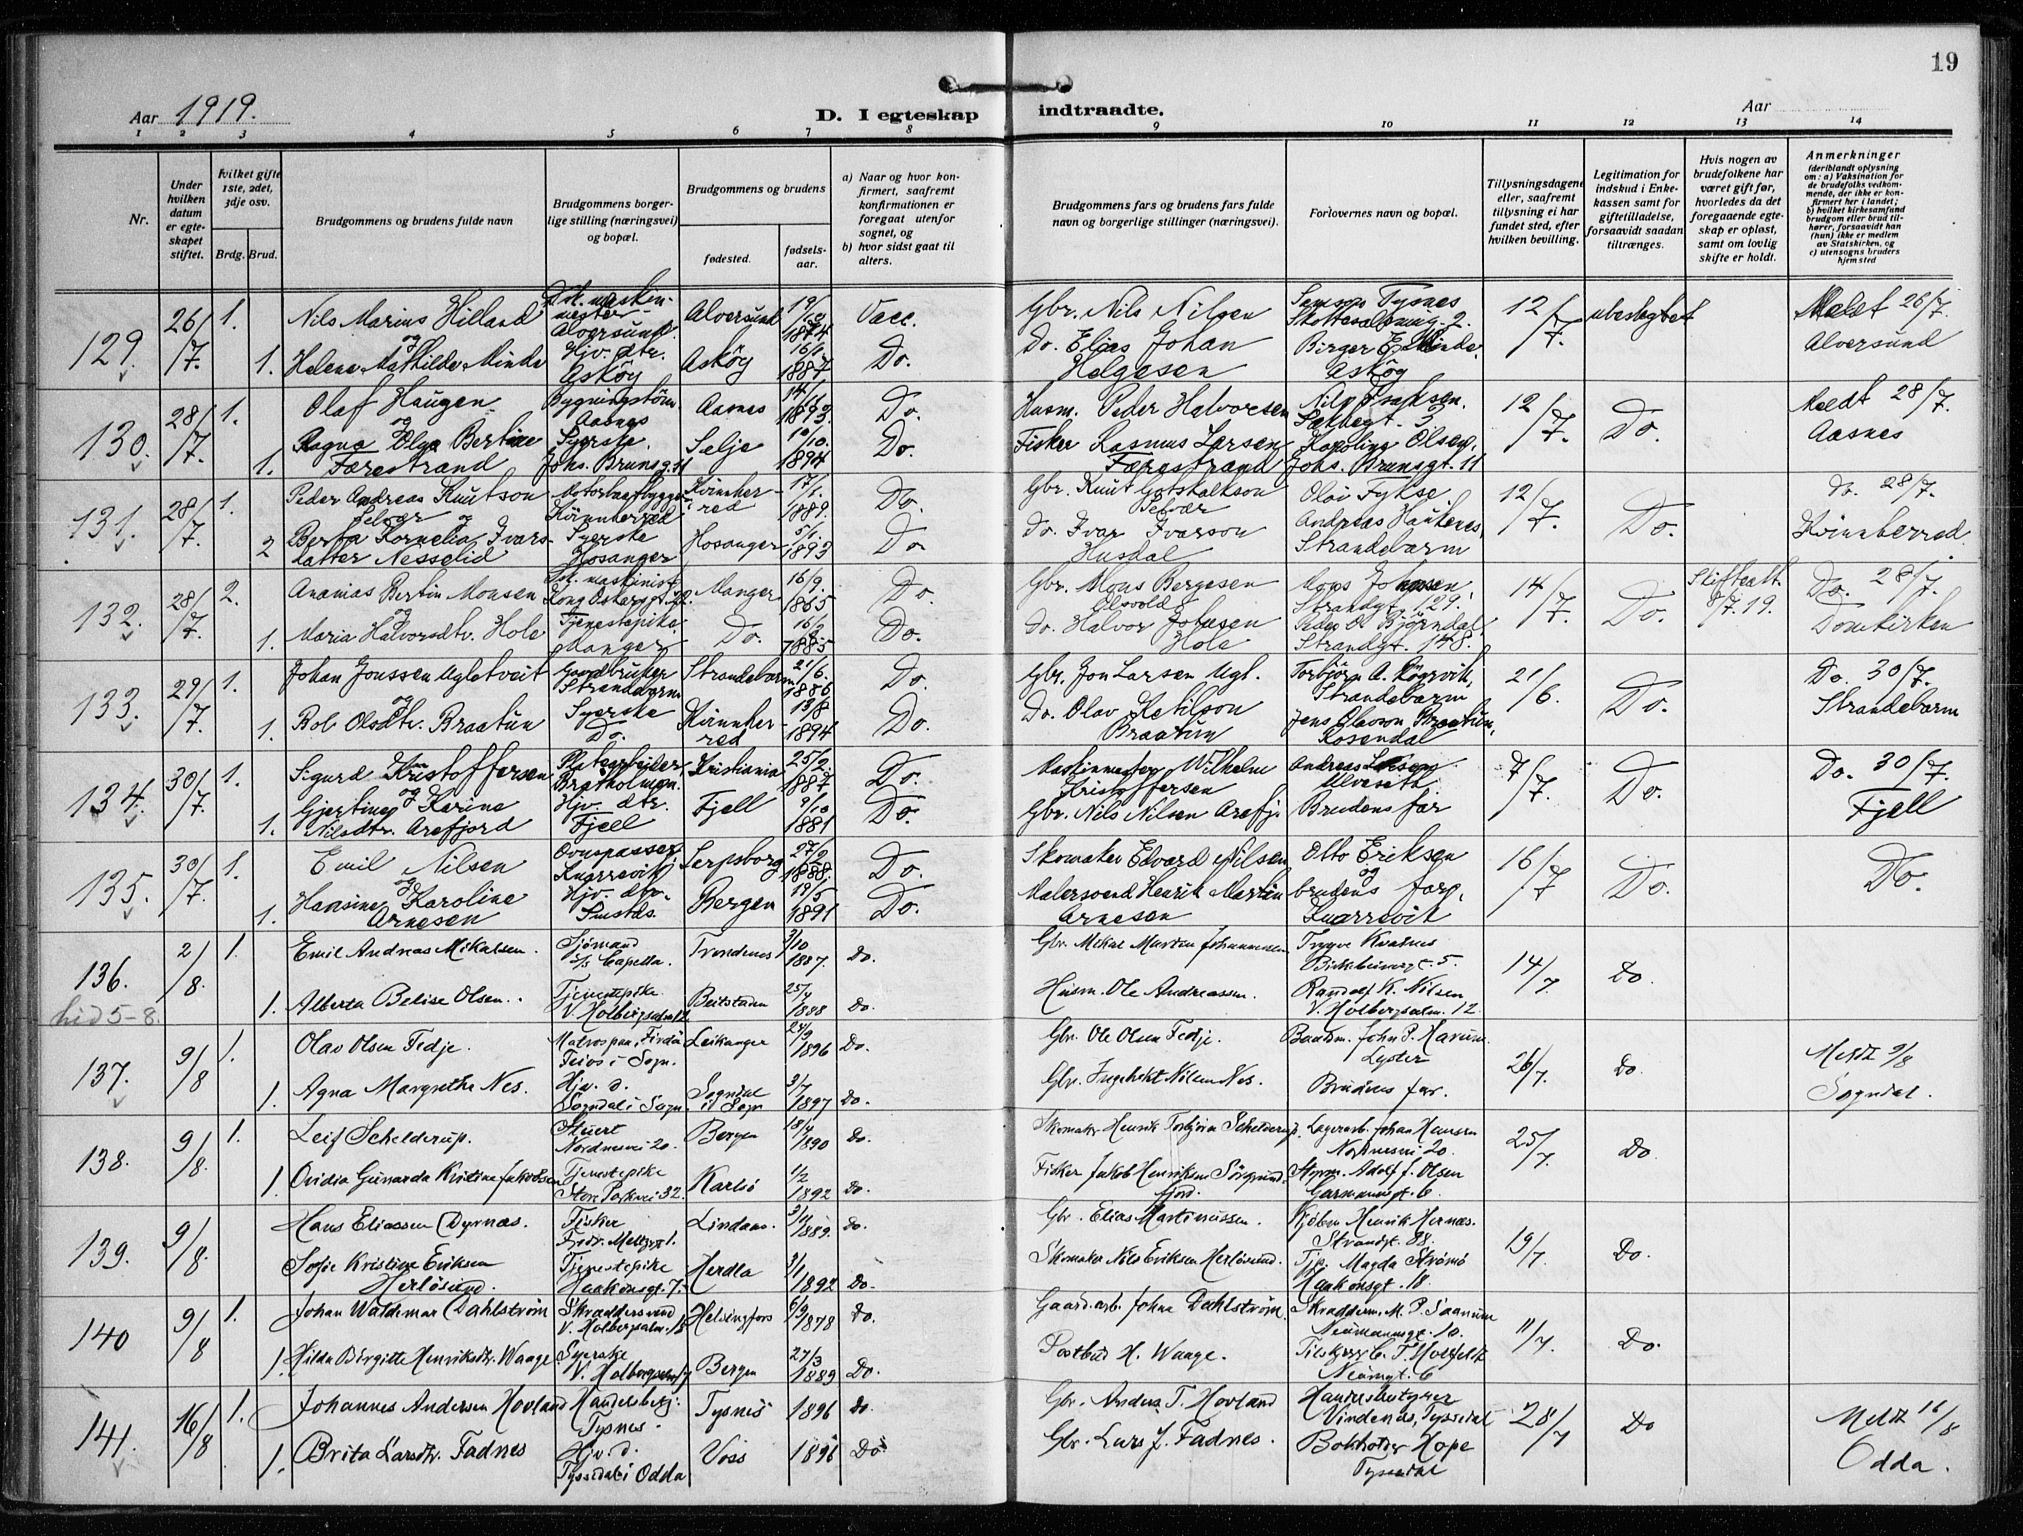 19
Aar 1919.
D. I egteskap indtraadte.
Aar
1 2 3 4 5 6 7 8 9 10 11 12 13 14
Nr.
Under hvilken datum er egteskapet stiftet.
Hvilket gifte 1ste, 2det, 3dje osv.
Brdg. Brud.
Brudgommens og brudens fulde navn
Brudgommens borgerlige stilling (næringsvei) og bopæl.
Brudgommens og brudens
fødested.
fødselsaar.
a) Naar og hvor konfirmert, saafremt konfirmationen er foregaat utenfor sognet, og
b) hvor sidst gaat til alters.
Brudgommens fars og brudens fars fulde navn og borgerlige stillinger (næringsvei).
Forlovernes navn og bopæl.
Tillysningsdagene eller, saafremt tillysning ei har fundet sted, efter hvilken bevilling.
Legitimation for indskud i Enkekassen samt for giftetilladelse, forsaavidt saadan tiltrænges.
Hvis nogen av brudefolkene har været gift før, hvorledes da det foregaaende egteskap er opløst, samt om lovlig skifte er holdt.
Anmerkninger
(deriblandt oplysning om: a) Vaksination for de brudefolks vedkommende, der ikke er konfirmert her i landet; b) hvilket kirkesamfund brudgom eller brud tilhører, forsaavidt han (hun) ikke er medlem av Statskirken, og c) utensogns bruders hjemsted
129. 26/7. 1. Nils Marius Hilland Alversund Alversund 19/10 1874 Vacc. Gbr. Nils Nilsen Samson Tysnes 12/7. ubesluttet Meldt 26/7.
og
1. Helene Mathilde Minde Hjv. dtr. Askøy Askøy 16/1 1887 Do. Do. Elias Johan Helgesen Birger E. Minde, Askøy Alversund
130. 28/7. 1. Olaf Haugen Aasnes Aasnes 14/11 1893. Do. Husm. Peder Halvorsen Nils Isaksen. 12/7. Do. Meldt 28/7.
og
1. Ragna Olga Bertine Færestrand Syerske. Johs. Brunsg. 11 Selje 19/10. 1894 Do. Fisker Rasmus Larsen Færestrand Karoline Olsen, Johs. Brunsgt. 11 Aasnes
131. 28/7. 1. Peder Andreas Knutson Selvær og Motorbaatbygger Kvinnherred Kvinnherred 17/1. 1889. Do. Gbr. Knut Gotskalkson Selvær Olai Fykse 12/7. Do. Do. 28/7.
2 Berta Kornelia Ivarsdatter Nesselid Syerske Hosanger Hosanger 5/1. 1893 Do Do. Ivar Ivarson Husdal Andreas Haukenes, Strandebarm Kvinnherred.
132. 28/7. 2. Ananias Bertin Monsen Kong Oskarsgt. 22. Manger 16/9. 1865 Do. Gbr. Mons Bergesen Mons Johnsen Strandgt. 129. 14/7. Do. Skifteatt. 7/7. 19. Do. 28/7.
og
1. Maria Halvorsdtr. Hole Tjenestepike, Manger Do. 1885 Do. Do. Halvor Johnsen Hole Peder O. Bjørndal, Strandgt. 148. Domkirken
133. 29/7. 1. Johan Jonssen Ugletveit Gaardbruker Strandebarm Strandebarm 21/6. 1886 Do. Gbr. Jon Larsen Ugl. Torbjørn A. Kogrvik, Strandebarm 21/6. Do. Do. 30/7.
og
1. Bol Olsdtr. Braatun Syerske Do. Kvinnherred 13/8 1894 Do. Do. Olav Ketilson Braatun Jens Olavson Braatun, Rosendal Strandebarm
134. 30/7. 1. Sigurd Kristoffersen Platearbeider, Bratholmen Kristiania 25/2. 1887 Do. Maskinmester Wilhelm Kristoffersen Andreas Ulveseth 7/7. Do. Do. 30/7.
og
1. Gjertine Karine Nilsdtr. Arefjord Hjv. dtr. Fjell Fjell 9/10 1881 Do. Gbr. Nils Nilsen Arefj. Brudens far Fjell
135. 30/7. 1. Emil Nilsen Ovnspasser Knarrevik Serpsborg 27/2 1888. Do. Skomaker Edvard Nilsen Otto Eriksen 16/7 Do. Do.
og
1. Hansine Karoline Arnesen Hjv. dtr. Smsteds. Bergen 19/5 1891 Do. Malersvend Henrik Martin Arnesen og brudens far, Knarrevik
136. 2/8. 1. Emil Andreas Mikalsen. Sjømand s/s Capella. Trondenes 3/10 1887. Do. Gbr. Mikal Martin Johannessen Trygve Kvalnes Birkebeinergt. 5. 14/7. Do
hid 5-8. 1. Alberta Belise Olsen. Tjenestepike V. Holbergsalm. 12 Beitstaden 25/4 1888 Do. Husm. Ole Andreassen. Randolf K. Nilsen V. Holbergsalm. 12
137. 9/8 1. Olav Olsen Fedje. Matros Feios i Sogn. Leikanger 24/9 1896 Do. Gbr. Ole Olsen Fedje. John P. Havum Lyster 26/7. Do. Meldt 9/8
1. Agna Margrethe Nes. Hjv. d. Sogndal i Sogn. Sogndal i Sogn 3/7 1897 Do. Gbr. Ingebrikt Nilsen Nes. Brudens far. Sogndal.
138. 9/8. 1. Leif Schelderup. Stuert Nordnesvei 20. Bergen 18/4 1890 Do. Skomaker Henrik Torbjørn Schelderup. Lagerarb. Johan Hansen Nordnesvei 20. 25/7. Do.
1. Ovidia Gunarda Kristine Jakobsen Tjenestepike Store Parkvei 32. Karlsø 1/2 1892 Do. Fisker Jakob Henriksen Sørgrundfjord. Styrm. Adolf J. Olsen Garmannsgt. 6.
139. 9/8. Hans Eliassen Dyrnæs. Fisker Fredr. Meltzgt 1. Lindaas. 3/4 1889. Do. Gbr. Elias Martinussen. Kjøbm Henrik Hernæs. Strandgt. 88. 19/7 Do.
Sofie Kristine Eriksen Herløsund. Tjenestepike Haakonsgt. 7. Herdla 3/1 1892 Do. Skomaker Nils Eriksen Herløsund. Tjp. Magda Strømø Haakonsgt. 18.
140 9/8 1. Johan Waldemar Dahlstrøm Skræddersvend V. Holbergsalm. 18 Helsingfors 6/9 1878 Do. Gaardarb. Johan Dahlstrøm. Skræddem. M. P. Saanum Neumannsgt. 10. 11/7 Do.
1. Hilda Birgitte Henriksdtr. Waage. Syerske V. Holbergsalm. Bergen 27/3 1889 Do. Postbud H. Waage. Neumgt. 6
141. 16/8 1. Johannes Andersen Hovland Handelsbetj. Tysnes. Tysnes 1896 Do. Gbr. Anders T. Hovland Handelsbestyrer Vindenes, Tyssedal 28/7 Do Meldt 16/8
1. Brita Larsdtr. Fadnes Hjv. d. Tyssedal i Odda Voss 1896 Do Gbr. Lars J. Fadnes. Bokholder Hope Tyssedal Odda.